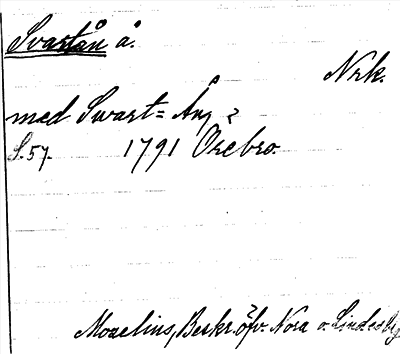 Svartån å.
Nrk.
med Swart= Ån
S.57. 1791 Örebro.
Moxelius, Beskr. öfv. Nora o. Lindesbg